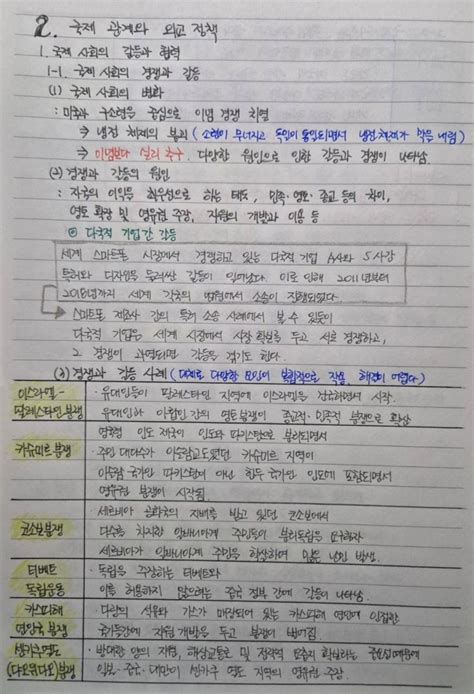 2. 국제 관계와 외교 정책
1. 국제 사회의 갈등과 협력
1-1. 국제 사회의 경쟁과 갈등
(1) 국제 사회의 변화
: 미국과 구소련을 중심으로 이념 경쟁 치열
⇒ 냉전 체제의 붕괴 (소련이 무너지고 독일이 통일되면서 냉전체제가 막을 내림)
⇒ 이념보다 실리 추구. 다양한 원인으로 인한 갈등과 경쟁이 나타남
(2) 경쟁과 갈등의 원인
: 자국의 이익을 최우선으로 하는 태도, 민족·영토·종교 등의 차이,
영토 확장 및 영유권 주장, 자원의 개발과 이용 등
다국적 기업 간 갈등
세계 스마트폰 시장에서 경쟁하고 있는 다국적 기업 A사와 S사간
특허와 디자인을 둘러싼 갈등이 일어났다. 이로 인해 2011년부터
2018년까지 세계 각국의 법원에서 소송이 진행되었다.
스마트폰 제조사 간의 특허 소송 사례에서 볼 수 있듯이
다국적 기업은 세계 시장에서 시장 확보를 두고 서로 경쟁하고,
그 경쟁이 과열되면 갈등을 겪기도 한다.
(3) 경쟁과 갈등 사례 (대체로 다양한 요인이 복합적으로 작용, 해결이 어렵다)
이스라엘- · 유대인들이 팔레스타인 지역에 이스라엘을 건국하면서 시작.
팔레스타인 분쟁 유대인과 아랍인 간의 영토분쟁이 종교적·민족적 분쟁으로 확산
영국령 인도 제국이 인도와 파키스탄으로 분리되면서
카슈미르 분쟁 · 주민 대다수가 이슬람교도였던 카슈미르 지역이
이슬람 국가인 파키스탄이 아닌 힌두 국가인 인도에 포함되면서
영유권 분쟁이 시작됨
세르비아 공화국의 지배를 받고 있던 코소보에서
코소보 분쟁 다수를 차지한 알바니아계 주민들이 분리독립을 요구하자
세르비아가 알바니아계 주민을 학살하여 많은 난민 발생.
티베트 · 독립을 주장하는 티베트와
독립운동 이를 허용하지 않으려는 중국 정부 간에 갈등이 나타남
카스피해 · 다량의 석유와 가스가 매장되어 있는 카스피해 연안에 인접한
연안국 분쟁 국가들간에 자원 개발을 두고 분쟁이 벌어짐.
센카쿠열도 · 방대한 양의 자원, 해상교통로 및 전략적 요충지 확보라는 중요성 때문에
(댜오위다오) 분쟁 일본·중국·대만이 센카쿠 열도 지역의 영유권 주장.